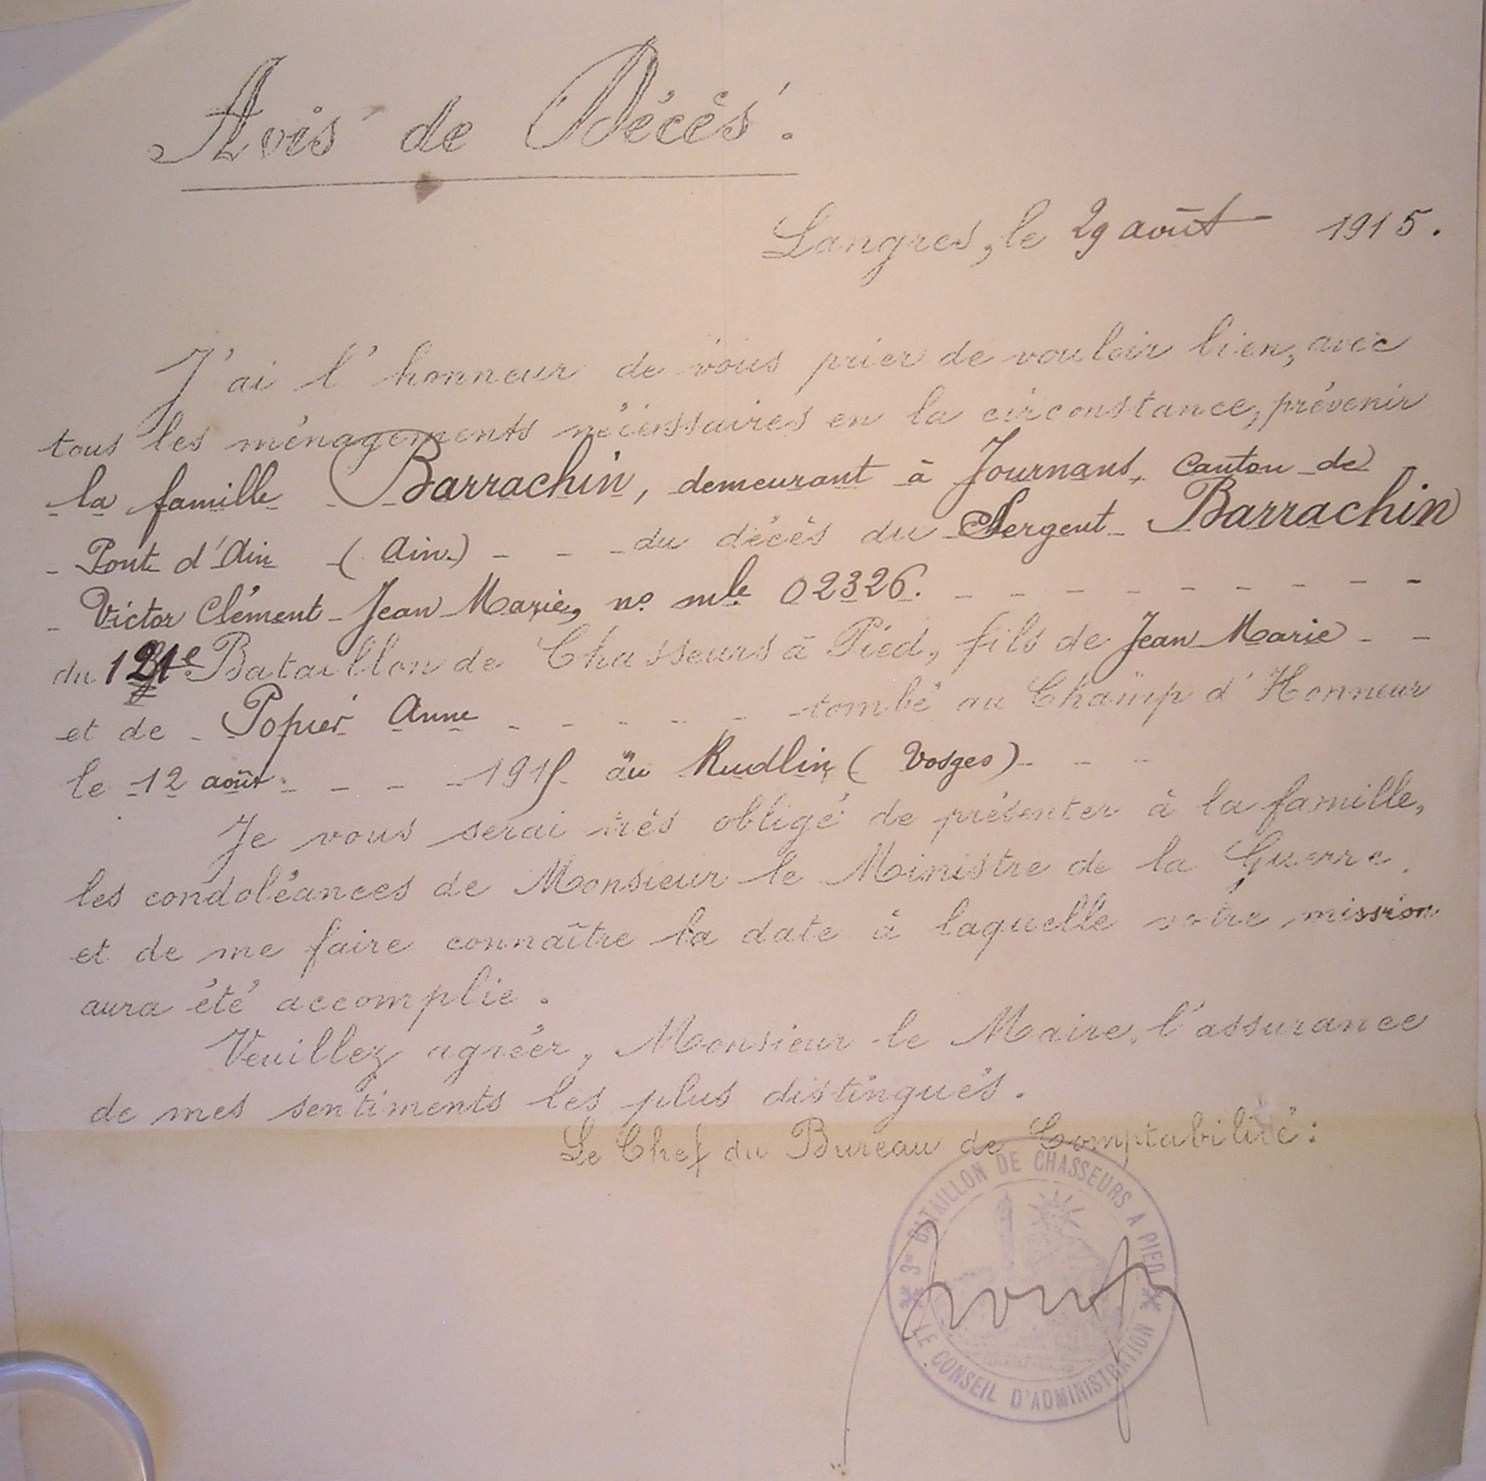 Avis de Décès.
Langres, le 29 août 1915.
J'ai l'honneur de vous prier de vouloir bien, avec
tous les ménagements nécessaires en la circonstance, prévenir
la famille Barrachin, demeurant à Journans, canton de
Pont d'Ain (Ain) - - - du décès du Sergent Barrachin
Victor Clément Jean Marie, no mle 02326. - - - - - - - - -
du 121e Bataillon de Chasseurs à Pied, fils de Jean Marie - -
et de Popier Anne - - - - - - tombé au Champ d'Honneur
le 12 août - - - - 1915 au Rudlin (Vosges) - - -
Je vous serai très obligé de présenter à la famille,
les condoléances de Monsieur le Ministre de la Guerre,
et de me faire connaître la date à laquelle votre mission
aura été accomplie.
Veuillez agréer, Monsieur le Maire, l'assurance
de mes sentiments les plus distingués.
Le Chef du Bureau de Comptabilité:
BATAILLON DE CHASSEURS A PIED
LE CONSEIL D'ADMINISTRATION